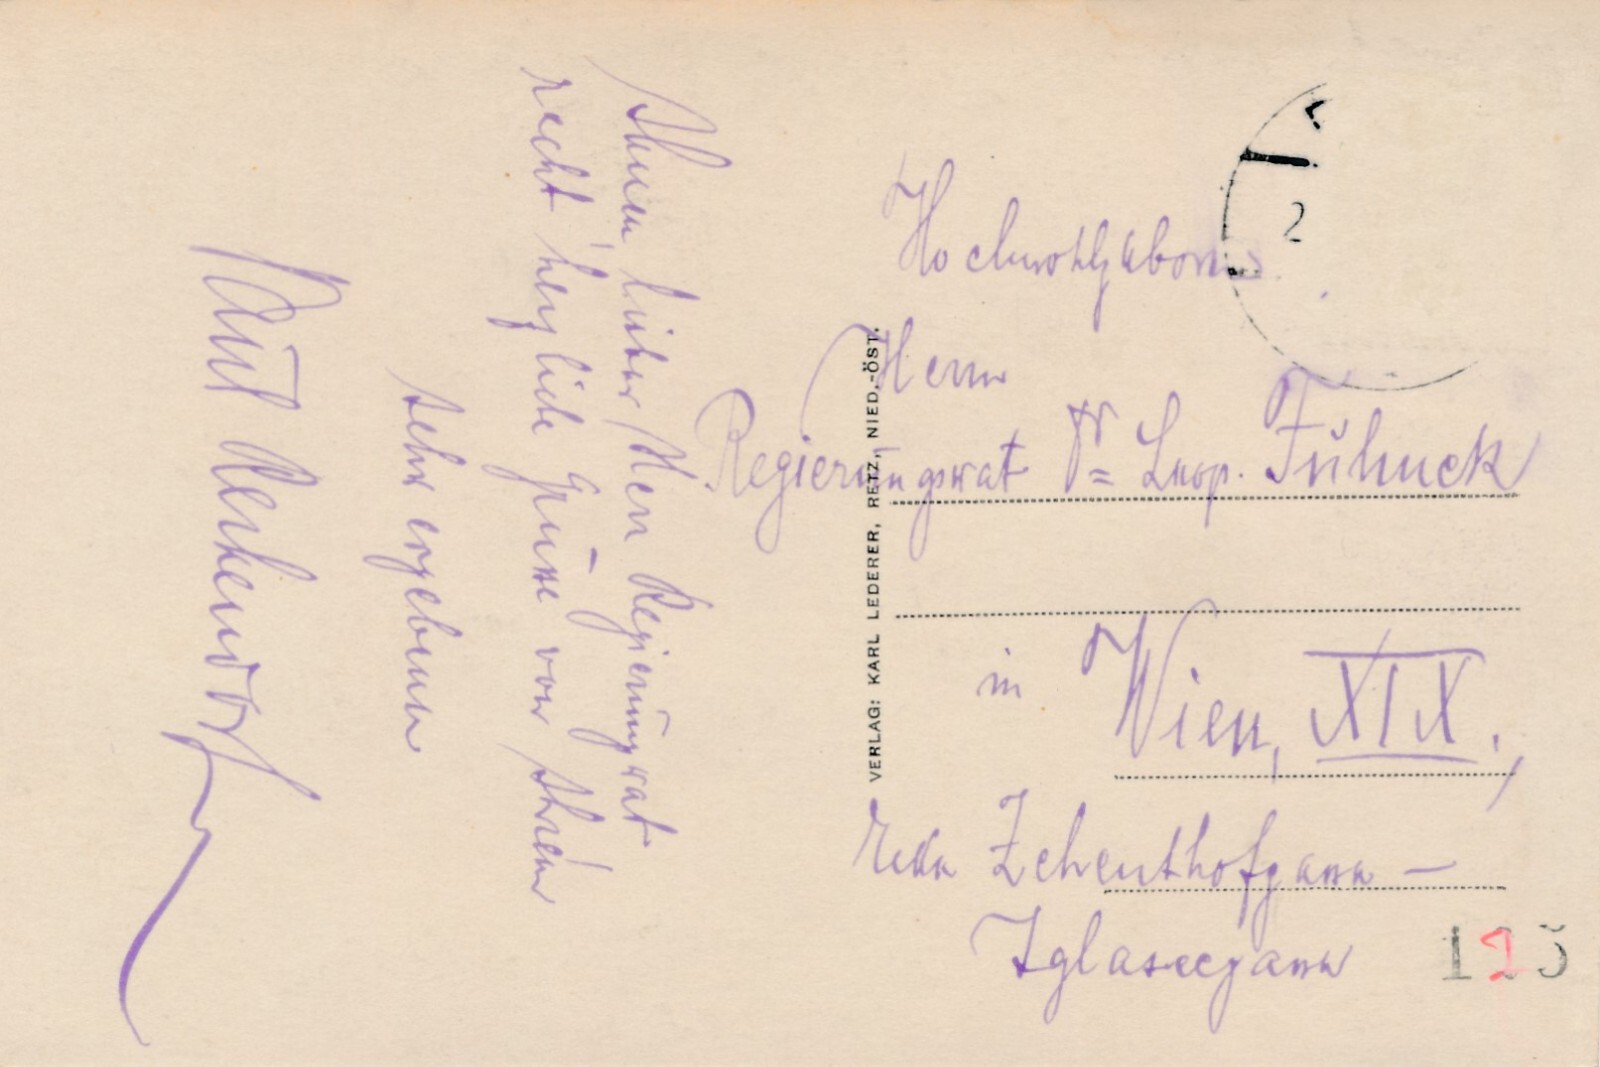 Ihnen lieber Herr Regierungsrat
recht herzliche Grüsse von Ihrem
sehr ergebenen
Hochwohlgeboren
Herrn
Regierungsrat Dr Leop.
in Wien, XIX.,
Zehenthofgasse —
Iglaseegasse
VERLAG: KARL LEDERER, RETZ, NIED.-ÖST.
2
123